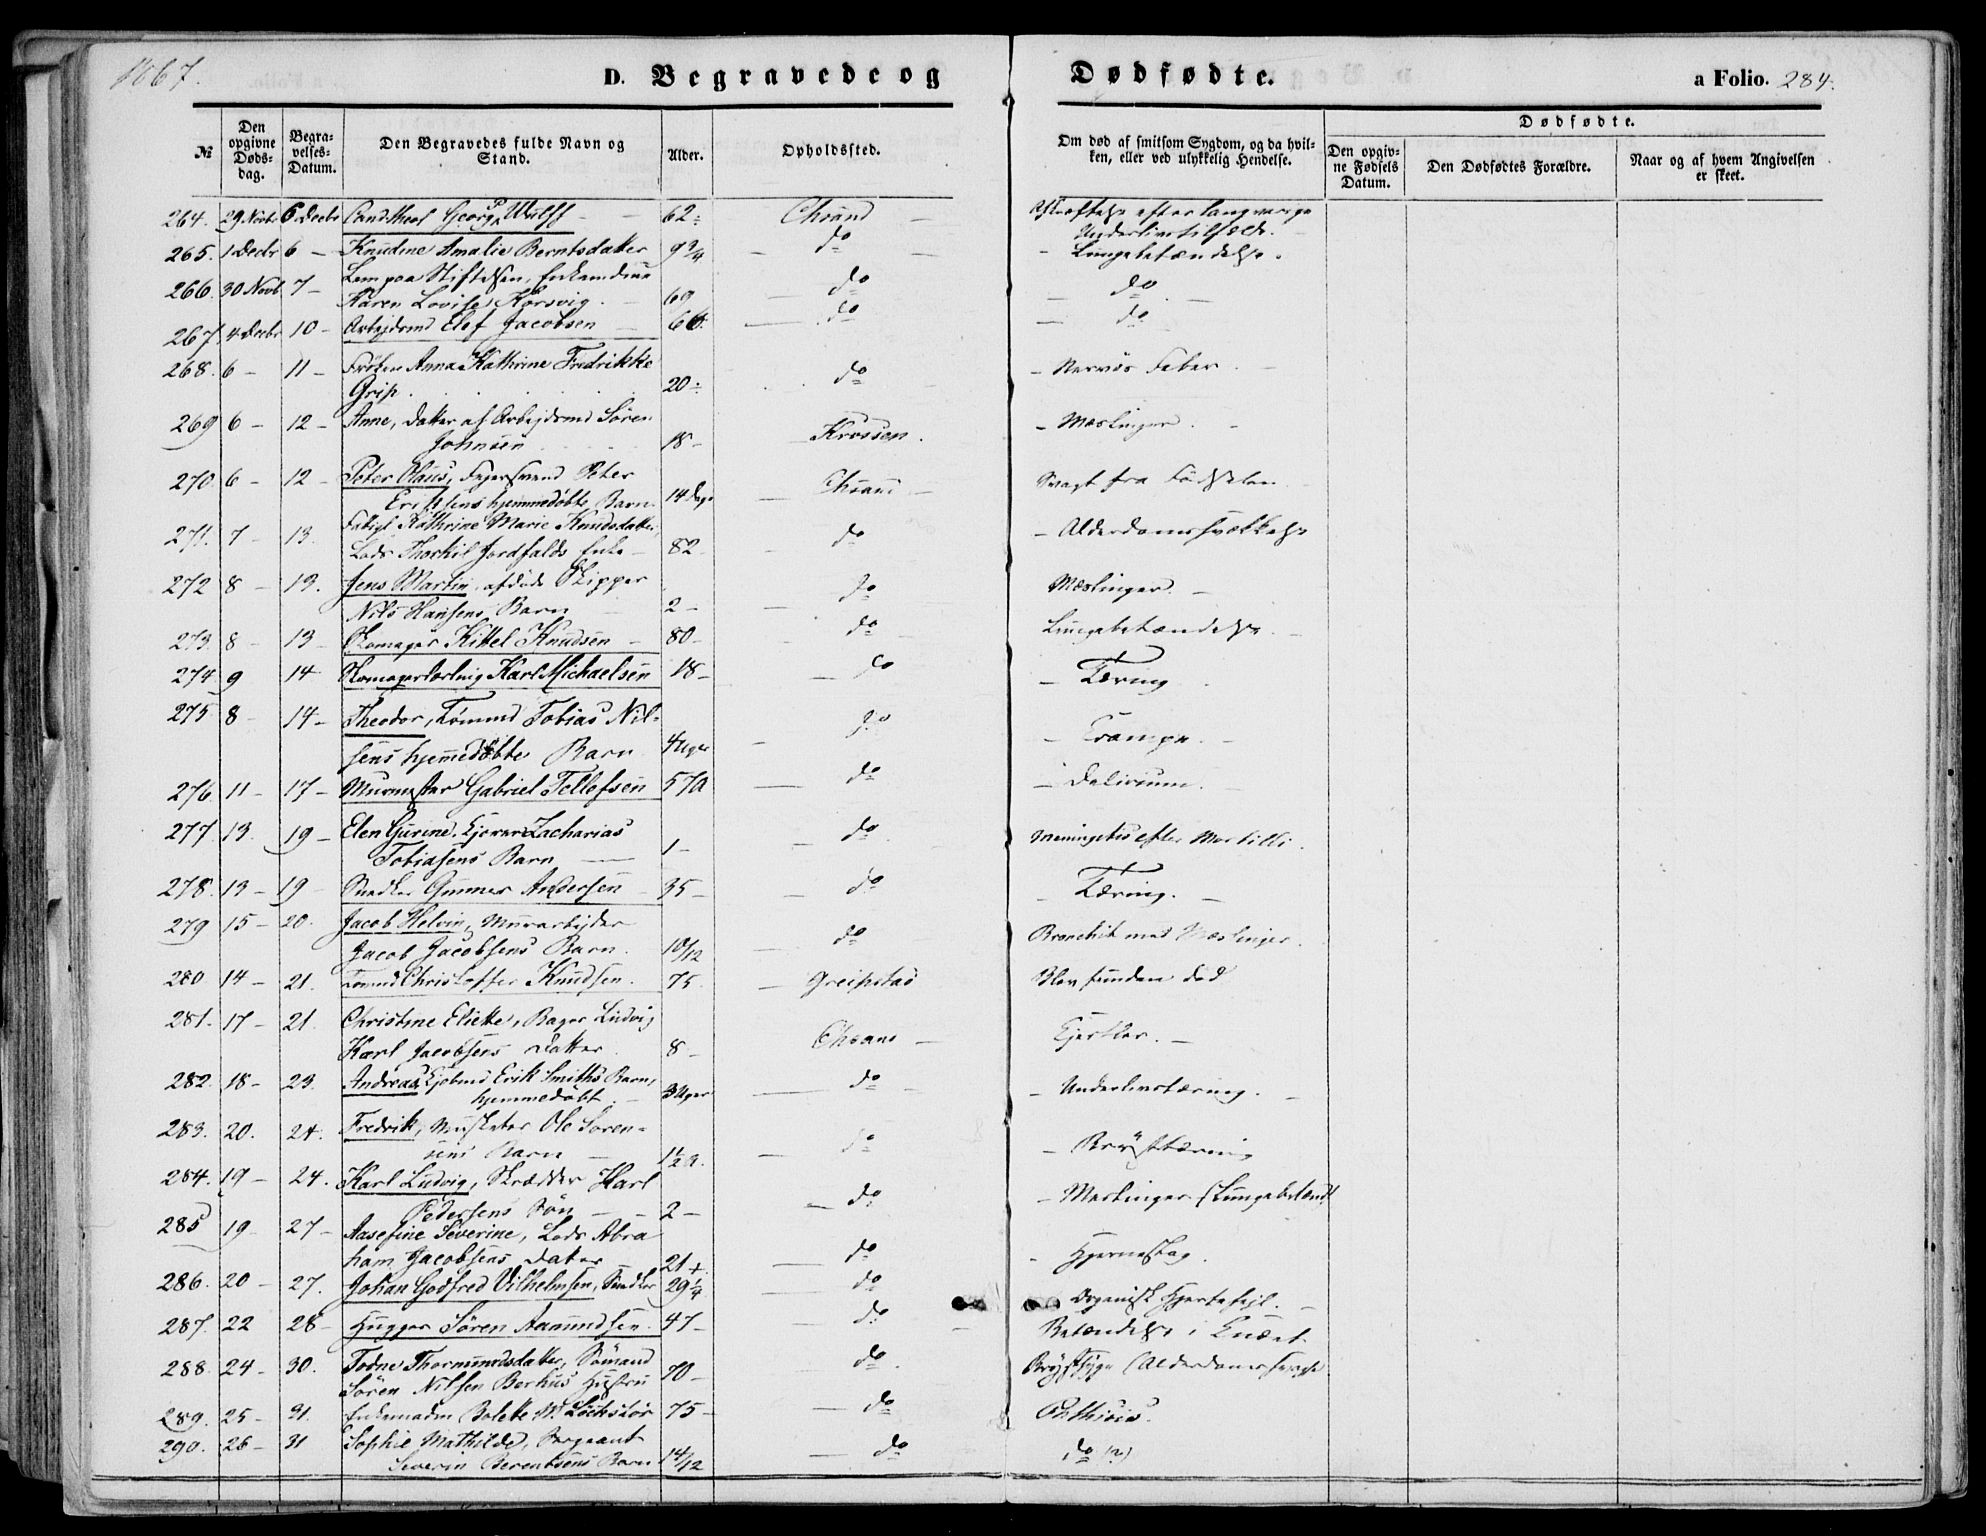 1867.
D. Begravede og Dødfødte.
a Folio. 284.
№
Den opgivne Døds-dag.
Begra-velses-Datum.
Den Begravedes fulde Navn og Stand.
Alder.
Opholdssted.
Om død af smitsom Sygdom, og da hvil-ken, eller ved ulykkelig Hendelse.
Dødfødte.
Den opgiv-ne Fødsels Datum.
Den Dødfødtes Forældre.
Naar og af hvem Angivelsen er skeet.
264. 29 Novbr 6 Decbr Cand theol Georg P Wulff - 62 Chsand Afkræftelse efter langvarige
Underlivstilfælde.
265. 1 Decbr 6 - Knudine Amalie Berntsdatter 9 3/4 - do - Lungebetændelse.
266. 30 Novb 7 - Lem paa Stiftelsen, Enkemadme
Karen Lovise Korsvig. 69 - do - do -
267. 4 Decbr 10 - Arbejdsmd Elef Jacobsen 66 - do - do
268. 6 - 11 - Frøken Anna Kathrine Fredrikke
Grip. 20 do - Nervøs Feber.
269 6 - 12 - Anne, Datter af Arbejdsmd Sören
Johnsen 18 - Krossen. - Mæslinger.
270. 6 - 12 - Peter Olaus, Fejersvend Peter
Eriksens hjemmedøbte Barn 14 Dage - Chsand - Svagt fra Fødselen
271. 7 - 13. Fattigl Kathrine Marie Knudsdatter,
Lods Thorkil Jordfalds Enke - 82 - do - Alderdomssvækkelse
272 8 - 13. Jens Martin, afdöde Skipper
Nils Hansens Barn 2 - - do Mæslinger. -
273. 8 - 13 - Skomager Kittel Knudsen - 80 - do Lungebetændelse. -
274. 9 14 - Skomagerlærling Karl Michaelsen 18 - - do - Tæring.
275 8 - 14 - Theodor, Tömmd Tobias Nil-
sens hjemmedöbte Barn 4 Uger - do - Krampe. -
276. 11 - 17 - Murmester Gabriel Tellefsen 57 a - do - Delirium. -
277 13. 19 - Elen Gurine, Kjører Zacharias
Tobiasens Barn 1 - - do Meningitis efter Morbilli.
278. 13 - 19 Snedker Gunner Andersen - 35 - do - Tæring. -
279 15 - 20. Jacob Helvin, Murarbejder
Jacob Jacobsens Barn. 10/12 - do Bronchit med Mæslinger.
280 14 - 21. Tømmd Christoffer Knudsen. 75. - Greipstad Blev funden død
281. 17 - 21. Christine Eliette, Bager Ludvig
Karl Jacobsens Datter 8 - Chsand -
282. 18 - 23. Andreas, Kjøbmd Erik Smiths Barn,
hjemmedöbt. 3 Uger - do - Underlivstæring. -
283. 20. 24. Fredrik, Musketer Ole Soren-
sens Barn 1 1/2 a. - do - Brÿsttæring
284. 19 - 24. Karl Ludvig, Skrædder Karl
Pedersens Sön - 2 - - do - Mæslinger (Lungebetænd
285 19 - 27 - Aasefine Severine, Lods Abra
ham Jacobsens Datter 21 - do - Hjerneslag.
286. 20 - 27. Johan Godfred Vilhelmsen, Snedker 29 1/4 - do Organisk Hjertefejl. -
287. 22 28 - Hugger Sören Aamundsen. 47 - do Betændelse i Knæet
288. 24 - 30. Todne Thormundsdatter, Sömand
Sören Nilsen Berhus Hustru 70 - do. Brÿstsyge (Alderdomssvagh
289. 25 - 31. Enkemadm Bolette M. 75 - - do Phthisis.
290. 26 - 31 Sophie Mathilde, Sergeant
Severin Berentsens Barn 14/12 - do do (?)